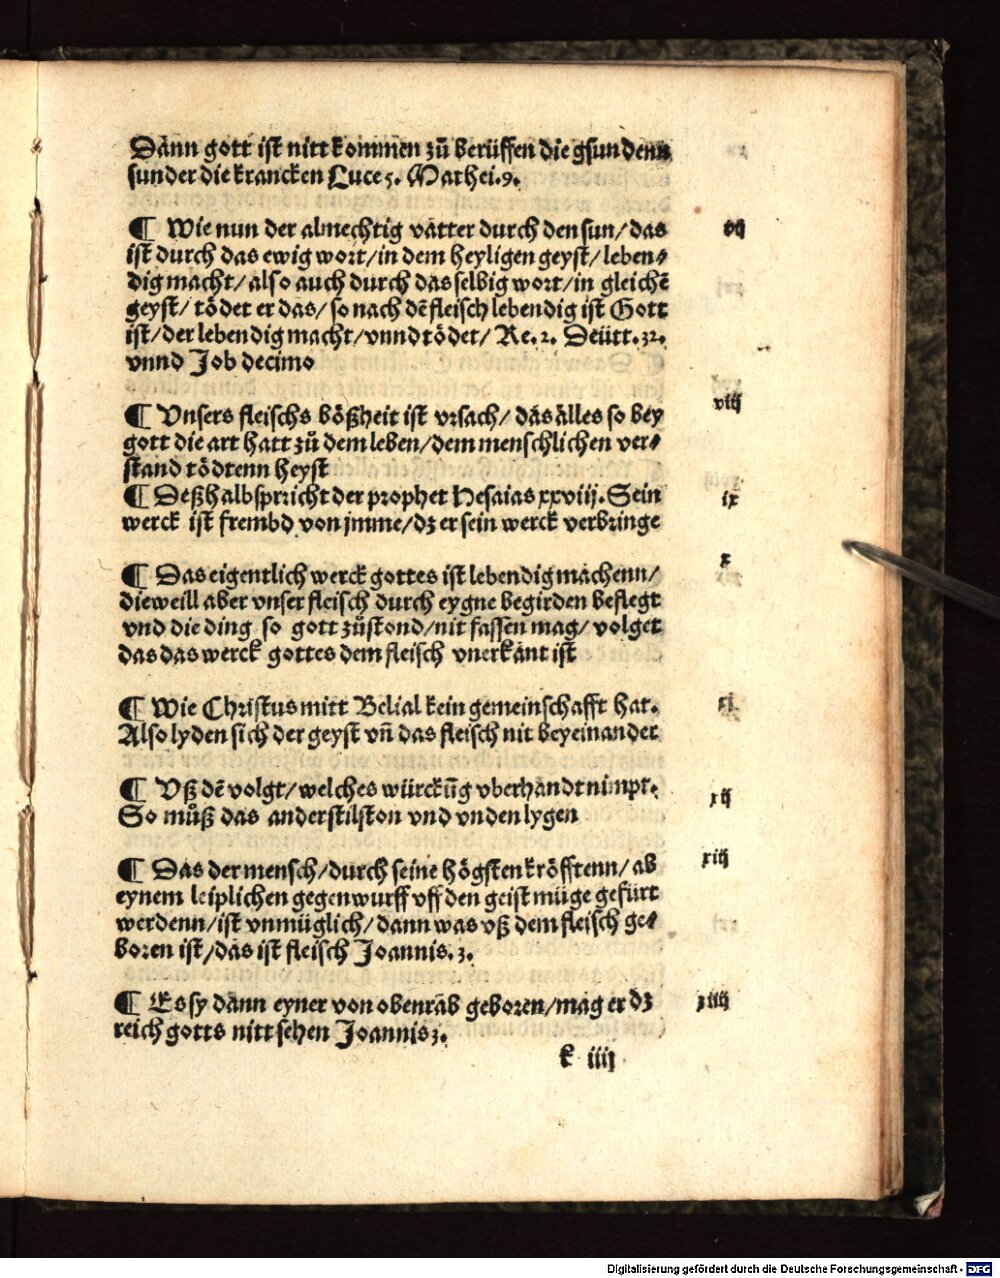 Dann gott ist nitt kommen zuͦ beruͤffen die gsundenn
sunder die krancken Luce 5. Mathei.9.
¶ Wie nun der almechtig vatter durch den sun/ das
vij
ist durch das ewig wort/ in dem heyligen geyst/ leben⸗
dig macht/ also auch durch das selbig wort/ in gleichē
geyst/ toͤdet er das/ so nach dē fleisch lebendig ist Gott
ist/ der lebendig macht/ vnnd toͤdet/ Re.2. Deütt.32.
vnnd Job decimo
viij
¶ Vnsers fleischs boͤßheit ist vrsach/ das alles so bey
gott die art hatt zuͦ dem leben/ dem menschlichen ver⸗
stand toͤdtenn heyst
¶ Deßhalb spricht der prophet Hesaias xxviij. Sein
ix
werck ist frembd von jmme/ dz er sein werck verbringe
x
¶ Das eigentlich werck gottes ist lebendig machenn/
dieweill aber vnser fleisch durch eygne begirden beflegt
vnd die ding so gott zuͦstond/ nit fassen mag/ volget
das das werck gottes dem fleisch vnerkant ist
¶ Wie Christus mitt Belial kein gemeinschafft hat.
xi
Also lyden sich der geyst vn̄ das fleisch nit beyeinander
¶ Vß dē volgt/ welches würckūg vberhandt nimpt.
xij
So muͦß das ander stilston vnd vnden lygen
xiij
¶ Das der mensch/ durch seine hoͤgsten kroͤfftenn/ ab
eynem leiplichen gegenwurff vff den geist müge gefürt
werdenn/ ist vnmüglich/ dann was vß dem fleisch ge⸗
boren ist/ das ist fleisch Joannis.3.
¶ Es sy dann eyner von obenrab geboren/ mag er dz
xiiij
reich gotts nitt sehen Joannis 3.
k iiij
Digitalisierung gefördert durch die Deutsche Forschungsgemeinschaft - DFG